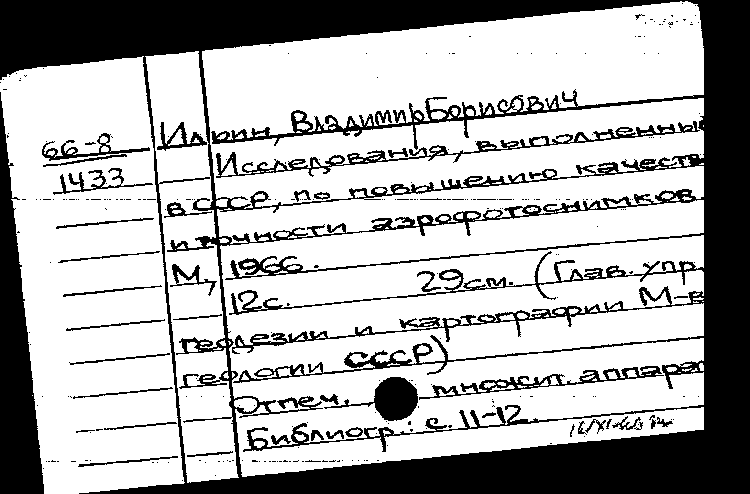 66-8
1433
Ильин, Владимир Борисович
Исследования, выполненные
в СССР, по повышению качеств
и точности аэрофотоснимков.
М., 1966.
12с. 29см. (Глав. упр.
геодезии и картографии М-в
геологии СССР)
Отпеч. множит. аппарат
Библиогр.: с. 11-12.